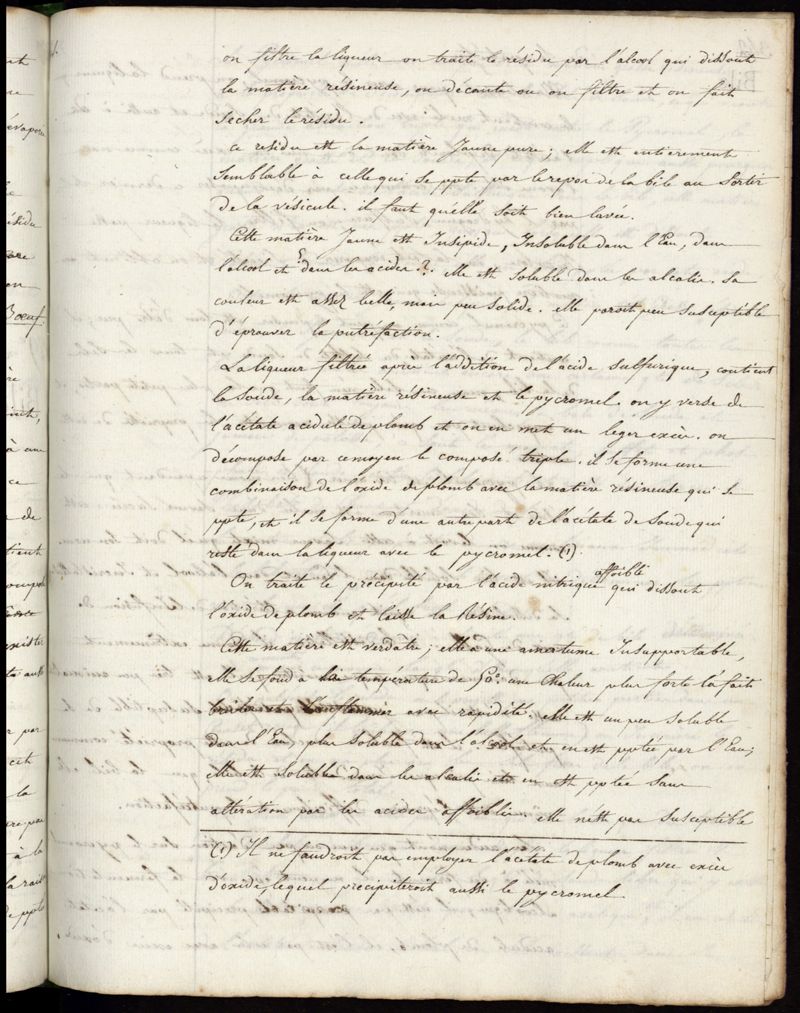 on filtre la liqueur on traite le résidu par l'alcool qui dissout
la matière résineuse, on décante ou on filtre et on fait
secher le résidu.
ce residu est la matière Jaune pure; elle est entierement
semblable à celle qui se ppte par le repos de la bile au sortir
de la vésicule. il faut qu'elle soit bien lavée.
Cette matière Jaune est Insipide, Insoluble dans l'Eau, dans
l'alcool et ? dans les acides ?. elle est soluble dans les alcalis. sa
couleur est assez belle, mais peu solide. elle paroit peu susceptible
d'éprouver la putrefaction.
La liqueur filtrée après l'addition de l'acide sulfurique, contient
la soude, la matière résineuse et le pycromel. on y verse de
l'acétate acidule de plomb et on en met un leger excès. on
décompose par ce moyen le composé triple. il se forme une
combinaison de l'oxide de plomb avec la matière résineuse qui se
ppte, et il se forme d'une autre part de l'acétate de soude qui
reste dans la liqueur avec le pycromel. (1)
On traite le précipité par l'acide nitrique affoibli qui dissout
l'oxide de plomb et laisse la Résine.
Cette matière est verdâtre; elle a une amertume Insupportable,
elle se fond à la température de 50° une Chaleur plus forte la fait
bruler et s'enflammer avec rapidité. elle est un peu soluble
dans l'Eau, plus soluble dans l'alcool et en est pptée par l'Eau;
elle est soluble dans les alcalis et en est pptée sans
altération par les acides affoiblis. elle n'est pas susceptible
(1) Il ne faudroit pas employer l'acétate de plomb avec excès
d'oxide, lequel précipiteroit aussi le pycromel